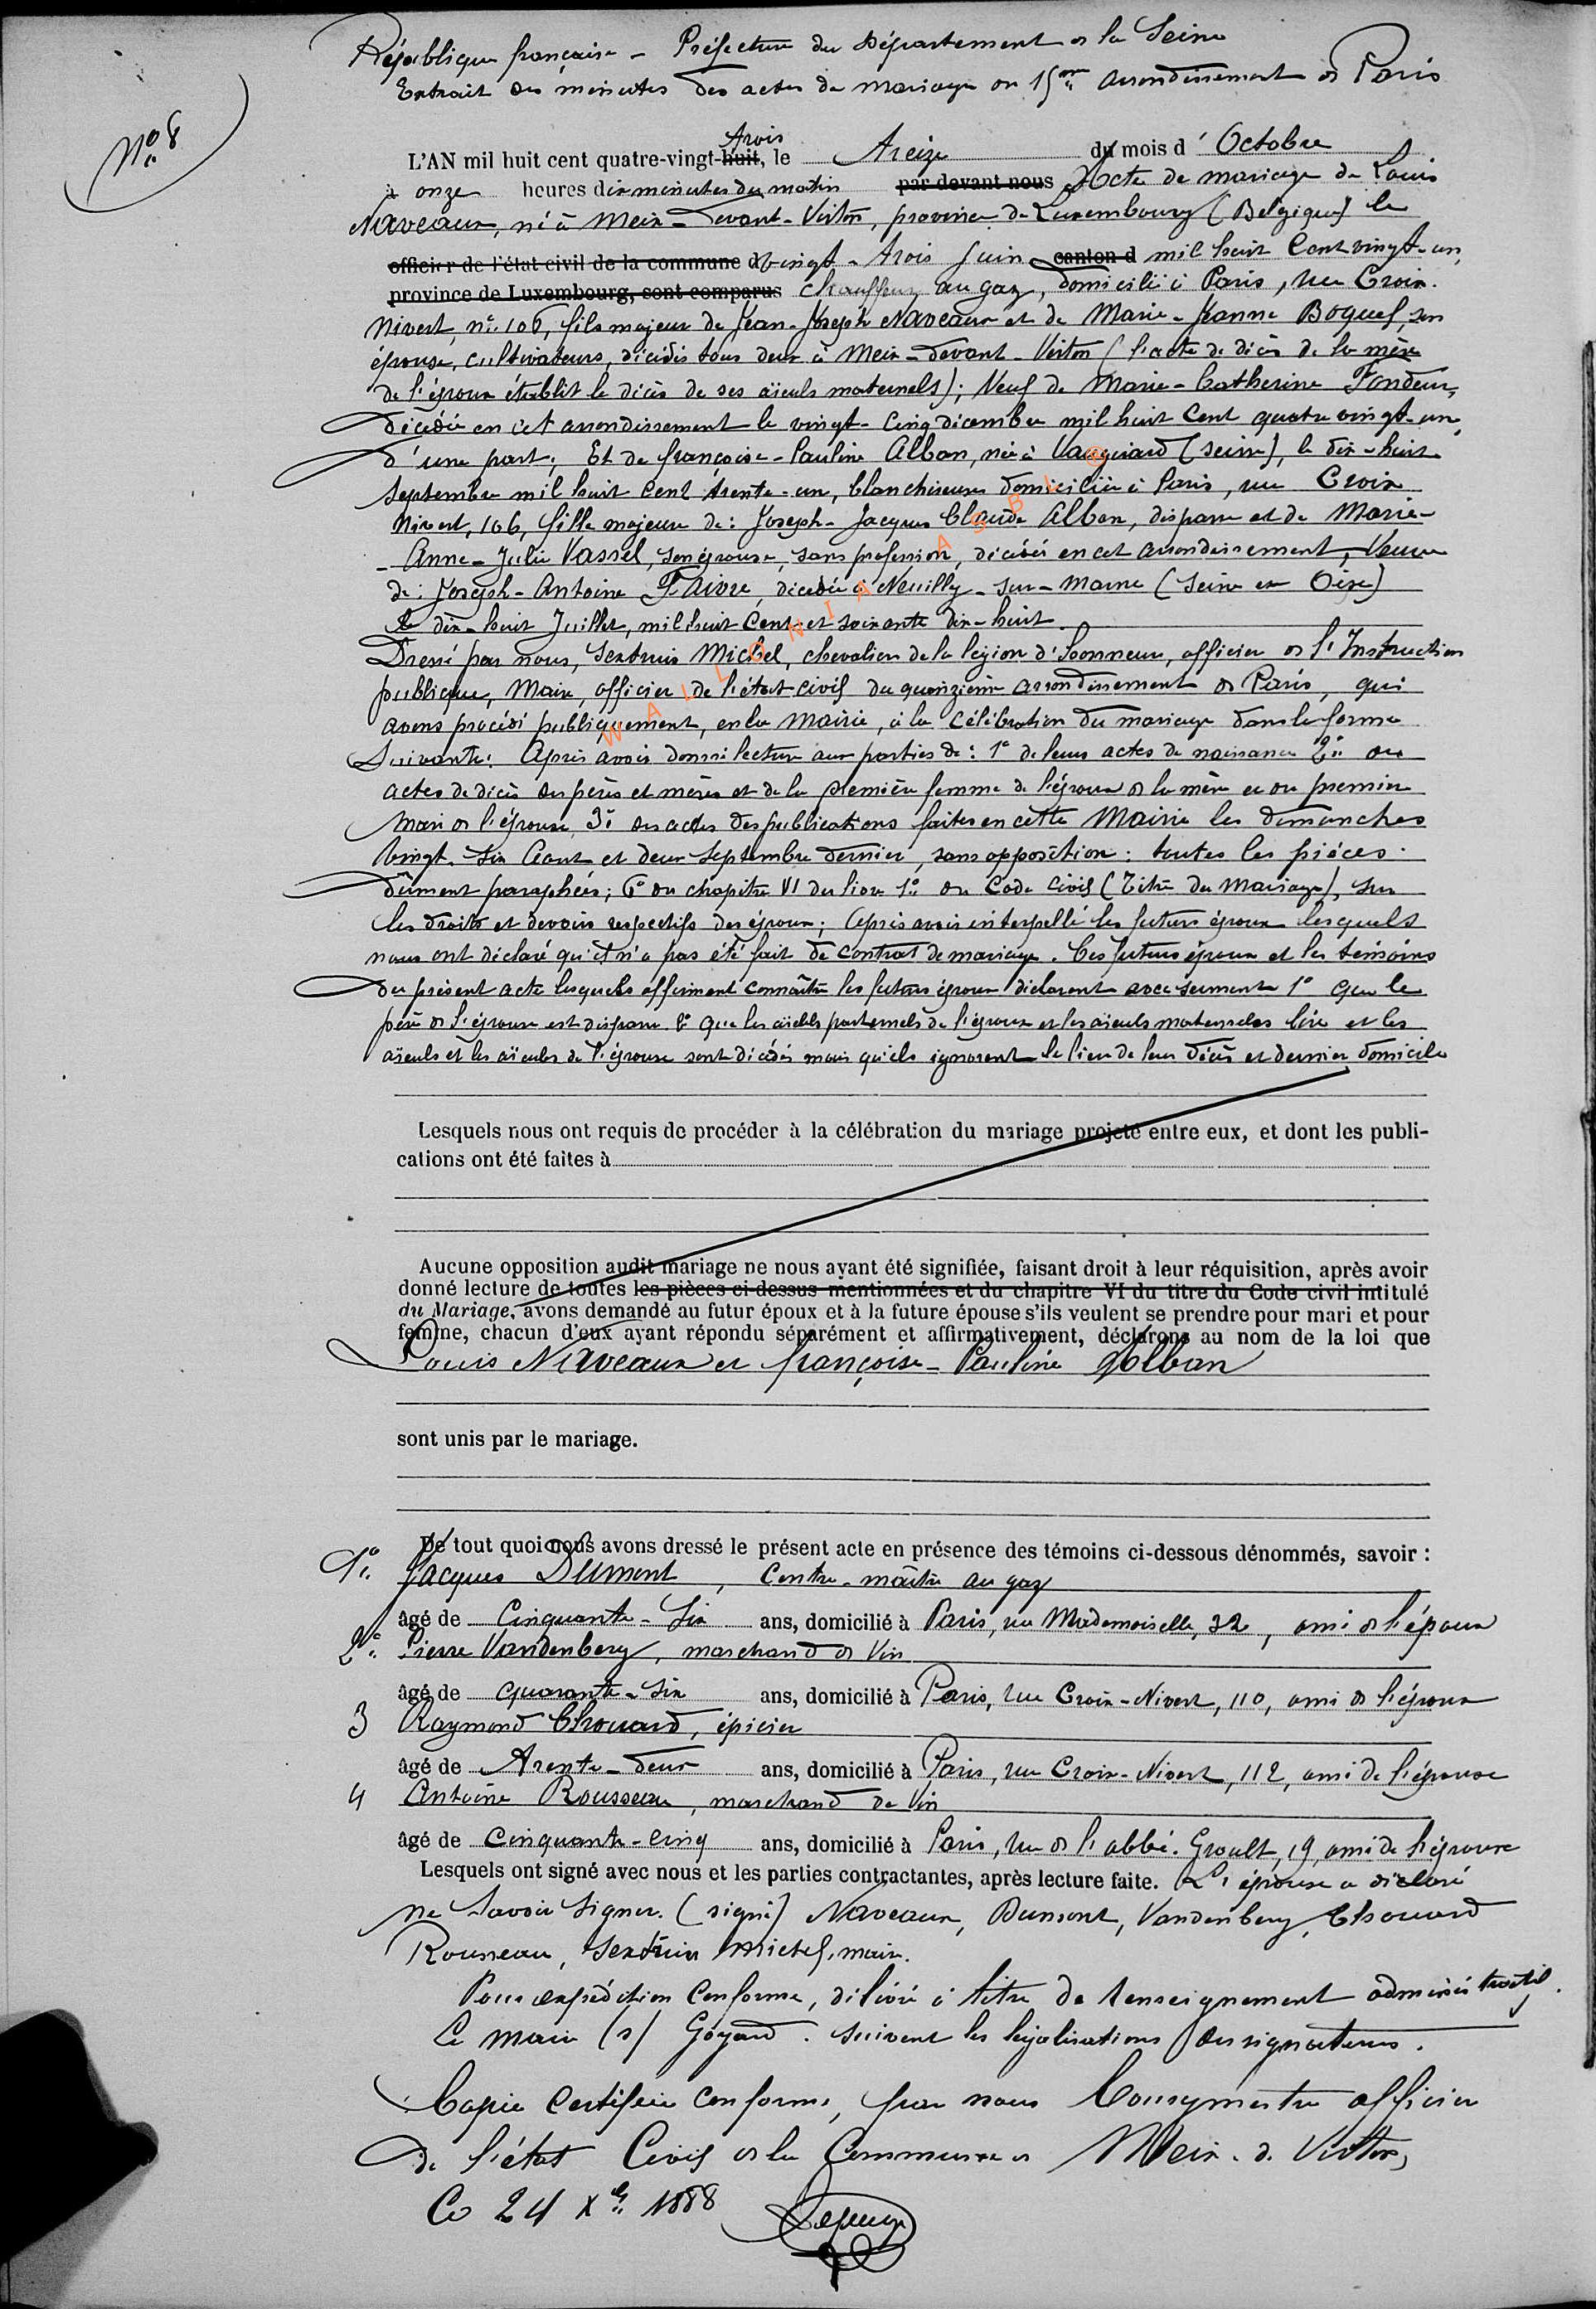 République française - Préfecture du Département de la Seine
Extrait des minutes des actes de mariage du 15me arrondissement de Paris
No. 8
Trois
L'AN mil huit cent quatre-vingt-huit, le Treize du mois d' Octobre
à onze heures dix minutes du matin par devant nous Acte de mariage de Louis
Naveaux, né à Meix-devant-Virton, province de Luxembourg (Belgique) le
officier de l'état civil de la commune d vingt-trois Juin canton d mil huit Cent vingt-un,
province de Luxembourg, sont comparus chauffeur au gaz, domicilié à Paris, rue Croix-
Nivert, n° 106, fils majeur de Jean-Joseph Naveaux et de Marie-Jeanne Boquel, son
épouse, cultivateurs, décédés tous deux à Meix-devant-Virton (l'acte de décès de la mère
de l'époux établit le décès de ses aïeuls maternels); Veuf de Marie-Catherine Fondeur,
décédée en cet arrondissement le vingt-cinq décembre mil huit Cent quatre vingt-un,
d'une part; Et de françoise-Pauline Alban, née à Vaugirard (seine), le dix-huit
septembre mil huit cent trente-un, blanchisseuse domiciliée à Paris, rue Croix
Nivert, 106, fille majeure de: Joseph-Jacques Claude Alban, disparu et de Marie-
-Anne-Julie Vassel, son épouse, sans profession, décédée en cet arrondissement, Veuve
de: Joseph-Antoine Faivre, décédé à Neuilly-sur-Marne (Seine et Oise)
le dix-huit Juillet, mil huit Cent et soixante dix-huit.
Dressé par nous, Sextius Michel, chevalier de la légion d'honneur, officier de l'Instruction
publique, Maire, officier de l'état-civil du quinzième arrondissement de Paris, qui
avons procédé publiquement, en la Mairie, à la célébration du mariage dans la forme
Suivante: Après avoir donné lecture aux parties de: 1° de leurs actes de naissance 2° des
actes de décès des pères et mères et de la première femme de l'époux de la mère et du premier
Mari de l'épouse, 3° des actes des publications faites en cette Mairie les dimanches
Vingt-six Août et deux Septembre dernier, sans opposition: toutes les pièces
dûment paraphées; 6° du chapitre VI du livre 1° du Code Civil (Titre du Mariage), sur
les droits et devoirs respectifs des époux; Après avoir interpellé les futurs époux lesquels
nous ont déclaré qu'il n'a pas été fait de contrat de mariage. Les futurs époux et les témoins
du présent acte lesquels affirment connaître les futurs époux déclarent avec serment 1° que le
père de l'épouse est disparu 2° que les aïeuls paternels de l'époux et les aïeuls maternels et les
aïeuls et les aïeules de l'épouse sont décédés mais qu'ils ignorent le lieu de leur décès et dernier domicile
Lesquels nous ont requis de procéder à la célébration du mariage projeté entre eux, et dont les publi-
cations ont été faites à
Aucune opposition audit mariage ne nous ayant été signifiée, faisant droit à leur réquisition, après avoir
donné lecture de toutes les pièces ci-dessus mentionnées et du chapitre VI du titre du Code civil intitulé
du Mariage, avons demandé au futur époux et à la future épouse s'ils veulent se prendre pour mari et pour
femme, chacun d'eux ayant répondu séparément et affirmativement, déclarons au nom de la loi que
Louis Naveaux et françoise-Pauline Alban
sont unis par le mariage.
De tout quoi nous avons dressé le présent acte en présence des témoins ci-dessous dénommés, savoir :
1° Jacques Dumont, Contre-maître au gaz
âgé de Cinquante-Six ans, domicilié à Paris, rue Mademoiselle, 32, ami de l'époux
2° Pierre Vandenberg, marchand de Vin
âgé de quarante-six ans, domicilié à Paris, rue Croix-Nivert, 110, ami de l'époux
3 Raymond Chouard, épicier
âgé de Trente-deux ans, domicilié à Paris, rue Croix-Nivert, 112, ami de l'épouse
4 Antoine Rousseau, marchand de Vin
âgé de cinquante-cinq ans, domicilié à Paris, rue de l'abbé-Groult, 19, ami de l'épouse
Lesquels ont signé avec nous et les parties contractantes, après lecture faite. L'épouse a déclaré
ne Savoir Signer. (signé) Naveaux, Dumont, Vandenberg, Chouard
Rousseau, Sextius Michel, maire.
Pour expédition Conforme, délivré à titre de renseignement administratif.
Le maire (s) Goyard. Suivent les légalisations des signatures.
Copie Certifiée Conforme, par nous Bourgmestre officier
de l'état Civil de la Commune de Meix-d-Virton,
Ce 24 Xbre 1888
WALLONIA ASBL ©